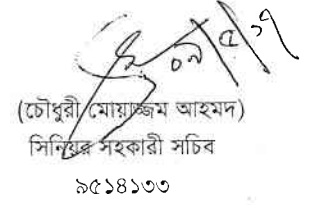 ০৯/৫/১৭
(চৌধুরী মোয়াজ্জম আহমদ)
সিনিয়র সহকারী সচিব
৯৫১৪১৩৩